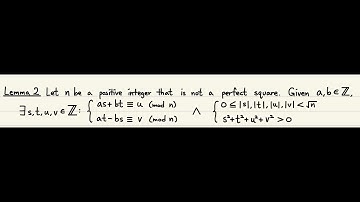 Lemma 2 Let n be a positive integer that is not a perfect square. Given a,b∈ℤ,
∃s,t,u,v∈ℤ: { as+bt ≡ u (mod n) ∧ { 0≤|s|,|t|,|u|,|v|<√n
at-bs ≡ v (mod n) s²+t²+u²+v²>0